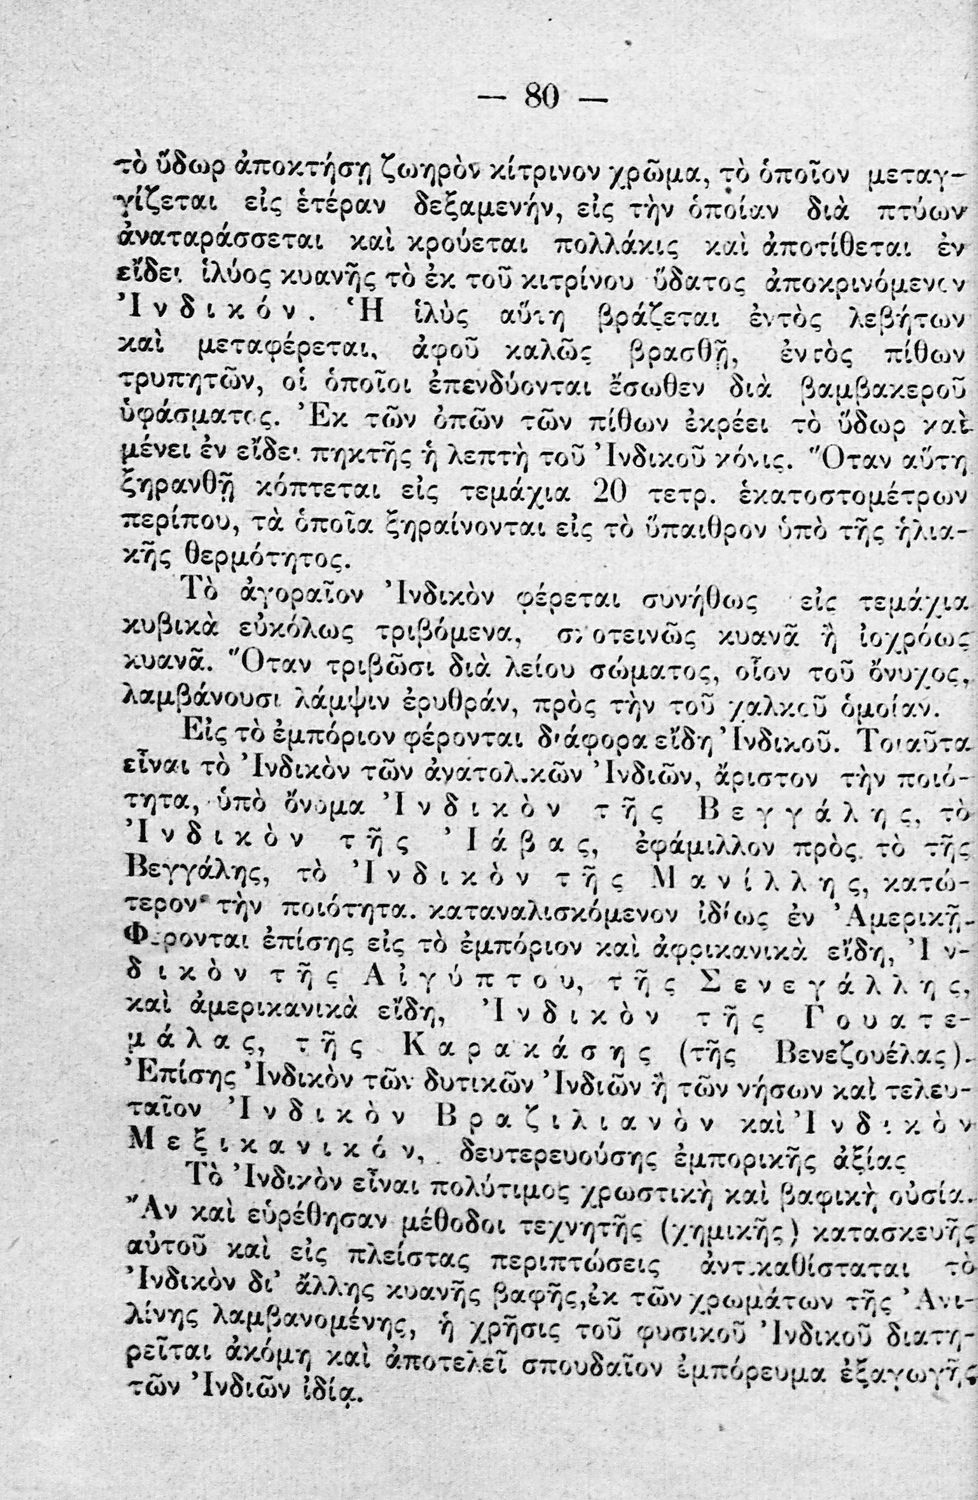 — 80 —
τὸ ὕδωρ ἀποκτήσῃ ζωηρὸν κίτρινον χρῶμα, τὸ ὁποῖον μεταγ-
γίζεται εἰς ἑτέραν δεξαμενήν, εἰς τὴν ὁποίαν διὰ πτύων
ἀναταράσσεται καὶ κρούεται πολλάκις καὶ ἀποτίθεται ἐν
εἴδει ἰλύος κυανῆς τὸ ἐκ τοῦ κιτρίνου ὕδατος ἀποκρινόμενον
Ἰνδικόν. Ἡ ἰλὺς αὕτη βράζεται ἐντὸς λεβήτων
καὶ μεταφέρεται, ἀφοῦ καλῶς βρασθῇ, ἐντὸς πίθων
τρυπητῶν, οἱ ὁποῖοι ἐπενδύονται ἔσωθεν διὰ βαμβακεροῦ
ὑφάσματος. Ἐκ τῶν ὀπῶν τῶν πίθων ἐκρέει τὸ ὕδωρ καὶ
μένει ἐν εἴδει πηκτῆς ἡ λεπτὴ τοῦ Ἰνδικοῦ κόνις. Ὅταν αὕτη
ξηρανθῇ κόπτεται εἰς τεμάχια 20 τετρ. ἑκατοστομέτρων
περίπου, τὰ ὁποῖα ξηραίνονται εἰς τὸ ὕπαιθρον ὑπὸ τῆς ἡλια-
κῆς θερμότητος.
Τὸ ἀγοραῖον Ἰνδικὸν φέρεται συνήθως εἰς τεμάχια
κυβικὰ εὐκόλως τριβόμενα, σκοτεινῶς κυανᾶ ἢ ἰοχρόως
κυανᾶ. Ὅταν τριβῶσι διὰ λείου σώματος, οἷον τοῦ ὄνυχος,
λαμβάνουσι λάμψιν ἐρυθράν, πρὸς τὴν τοῦ χαλκοῦ ὁμοίαν.
Εἰς τὸ ἐμπόριον φέρονται διάφορα εἴδη Ἰνδικοῦ. Τοιαῦτα
εἶναι τὸ Ἰνδικὸν τῶν ἀνατολικῶν Ἰνδιῶν, ἄριστον τὴν ποιό-
τητα, ὑπὸ ὄνομα Ἰνδικὸν τῆς Βεγγάλης, τὸ
Ἰνδικὸν τῆς Ἰάβας, ἐφάμιλλον πρὸς τὸ τῆς
Βεγγάλης, τὸ Ἰνδικὸν τῆς Μανίλλης, κατώ-
τερον τὴν ποιότητα, καταναλισκόμενον ἰδίως ἐν Ἀμερικῇ.
Φέρονται ἐπίσης εἰς τὸ ἐμπόριον καὶ ἀφρικανικὰ εἴδη, Ἰν-
δικὸν τῆς Αἰγύπτου, τῆς Σενεγάλλης,
καὶ ἀμερικανικὰ εἴδη, Ἰνδικὸν τῆς Γουατε-
μάλας, τῆς Καρακάσης (τῆς Βενεζουέλας).
Ἐπίσης Ἰνδικὸν τῶν δυτικῶν Ἰνδιῶν ἢ τῶν νήσων καὶ τελευ-
ταῖον Ἰνδικὸν Βραζιλιανὸν καὶ Ἰνδικὸν
Μεξικανικόν, δευτερευούσης ἐμπορικῆς ἀξίας
Τὸ Ἰνδικὸν εἶναι πολύτιμος χρωστικὴ καὶ βαφικὴ οὐσία.
Ἂν καὶ εὑρέθησαν μέθοδοι τεχνητῆς (χημικῆς) κατασκευῆς
αὐτοῦ καὶ εἰς πλείστας περιπτώσεις ἀντικαθίσταται τὸ
Ἰνδικὸν δι' ἄλλης κυανῆς βαφῆς, ἐκ τῶν χρωμάτων τῆς Ἀνι-
λίνης λαμβανομένης, ἡ χρῆσις τοῦ φυσικοῦ Ἰνδικοῦ διατη-
ρεῖται ἀκόμη καὶ ἀποτελεῖ σπουδαῖον ἐμπόρευμα ἐξαγωγῆς
τῶν Ἰνδιῶν ἰδίᾳ.